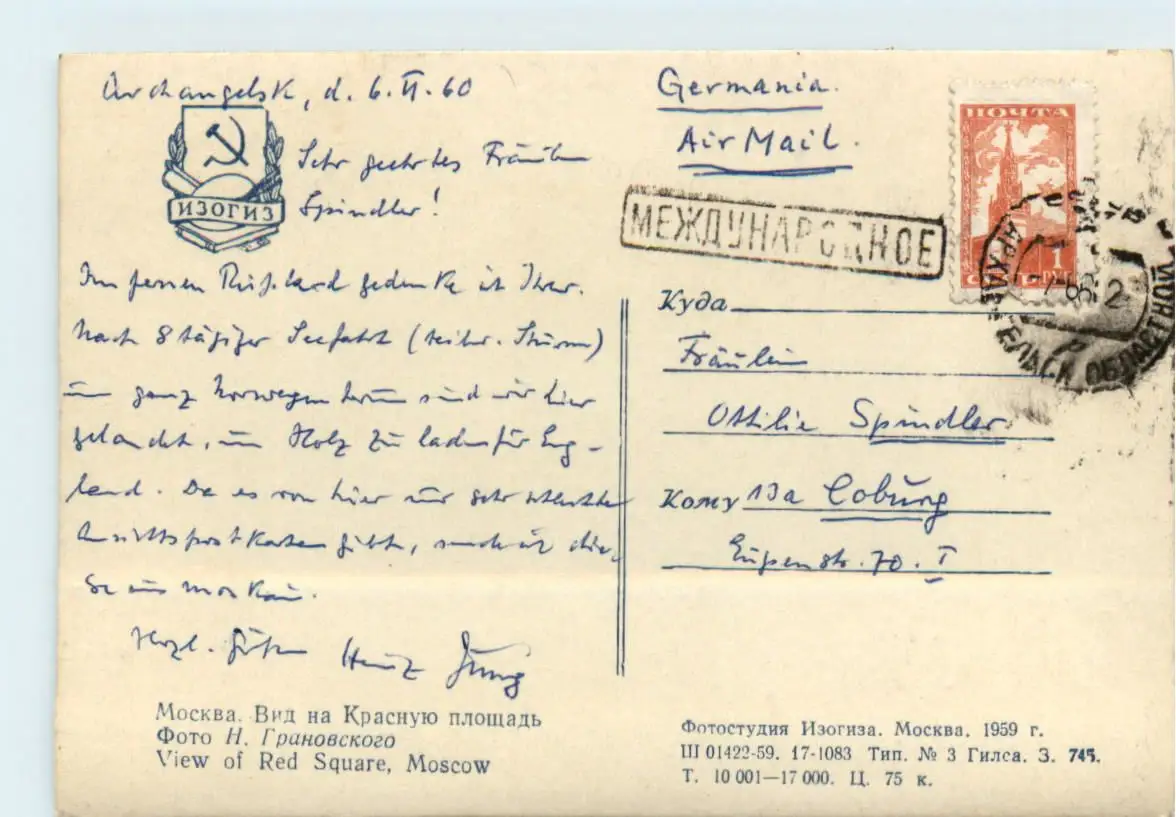 Archangelsk, d. 6. VI. 60
ИЗОГИЗ
Sehr geehrtes Fräulein
Spindler!
Im fernen Rußland gedenke ich Ihrer.
Nach 8 tägiger Seefahrt (teilw. Sturm)
um ganz Norwegen herum sind wir hier
gelandet, um Holz zu laden für Eng-
land. Da es von hier nur sehr schlechte
Ansichtspostkarten gibt, sende ich die-
se aus Moskau.
Herzl. Grüße Heinz Jung
Москва. Вид на Красную площадь
Фото Н. Грановского
View of Red Square, Moscow
Germania.
Air Mail.
ПОЧТА
1
РУБ
МЕЖДУНАРОДНОЕ
Куда
Fräulein
Ottilie Spindler
Кому 13a Coburg
Eupenstr. 70. I
Фотостудия Изогиза. Москва. 1959 г.
Ш 01422-59. 17-1083 Тип. № 3 Гилса. З. 745.
Т. 10 001—17 000. Ц. 75 к.